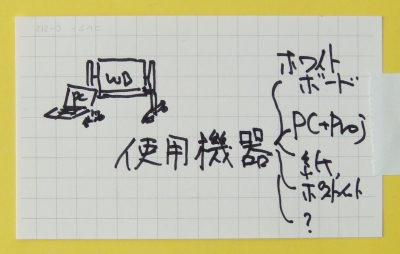 WB
PC
使用機器
ホワイト
ボード
PC+Proj
紙,
ポストイット
?